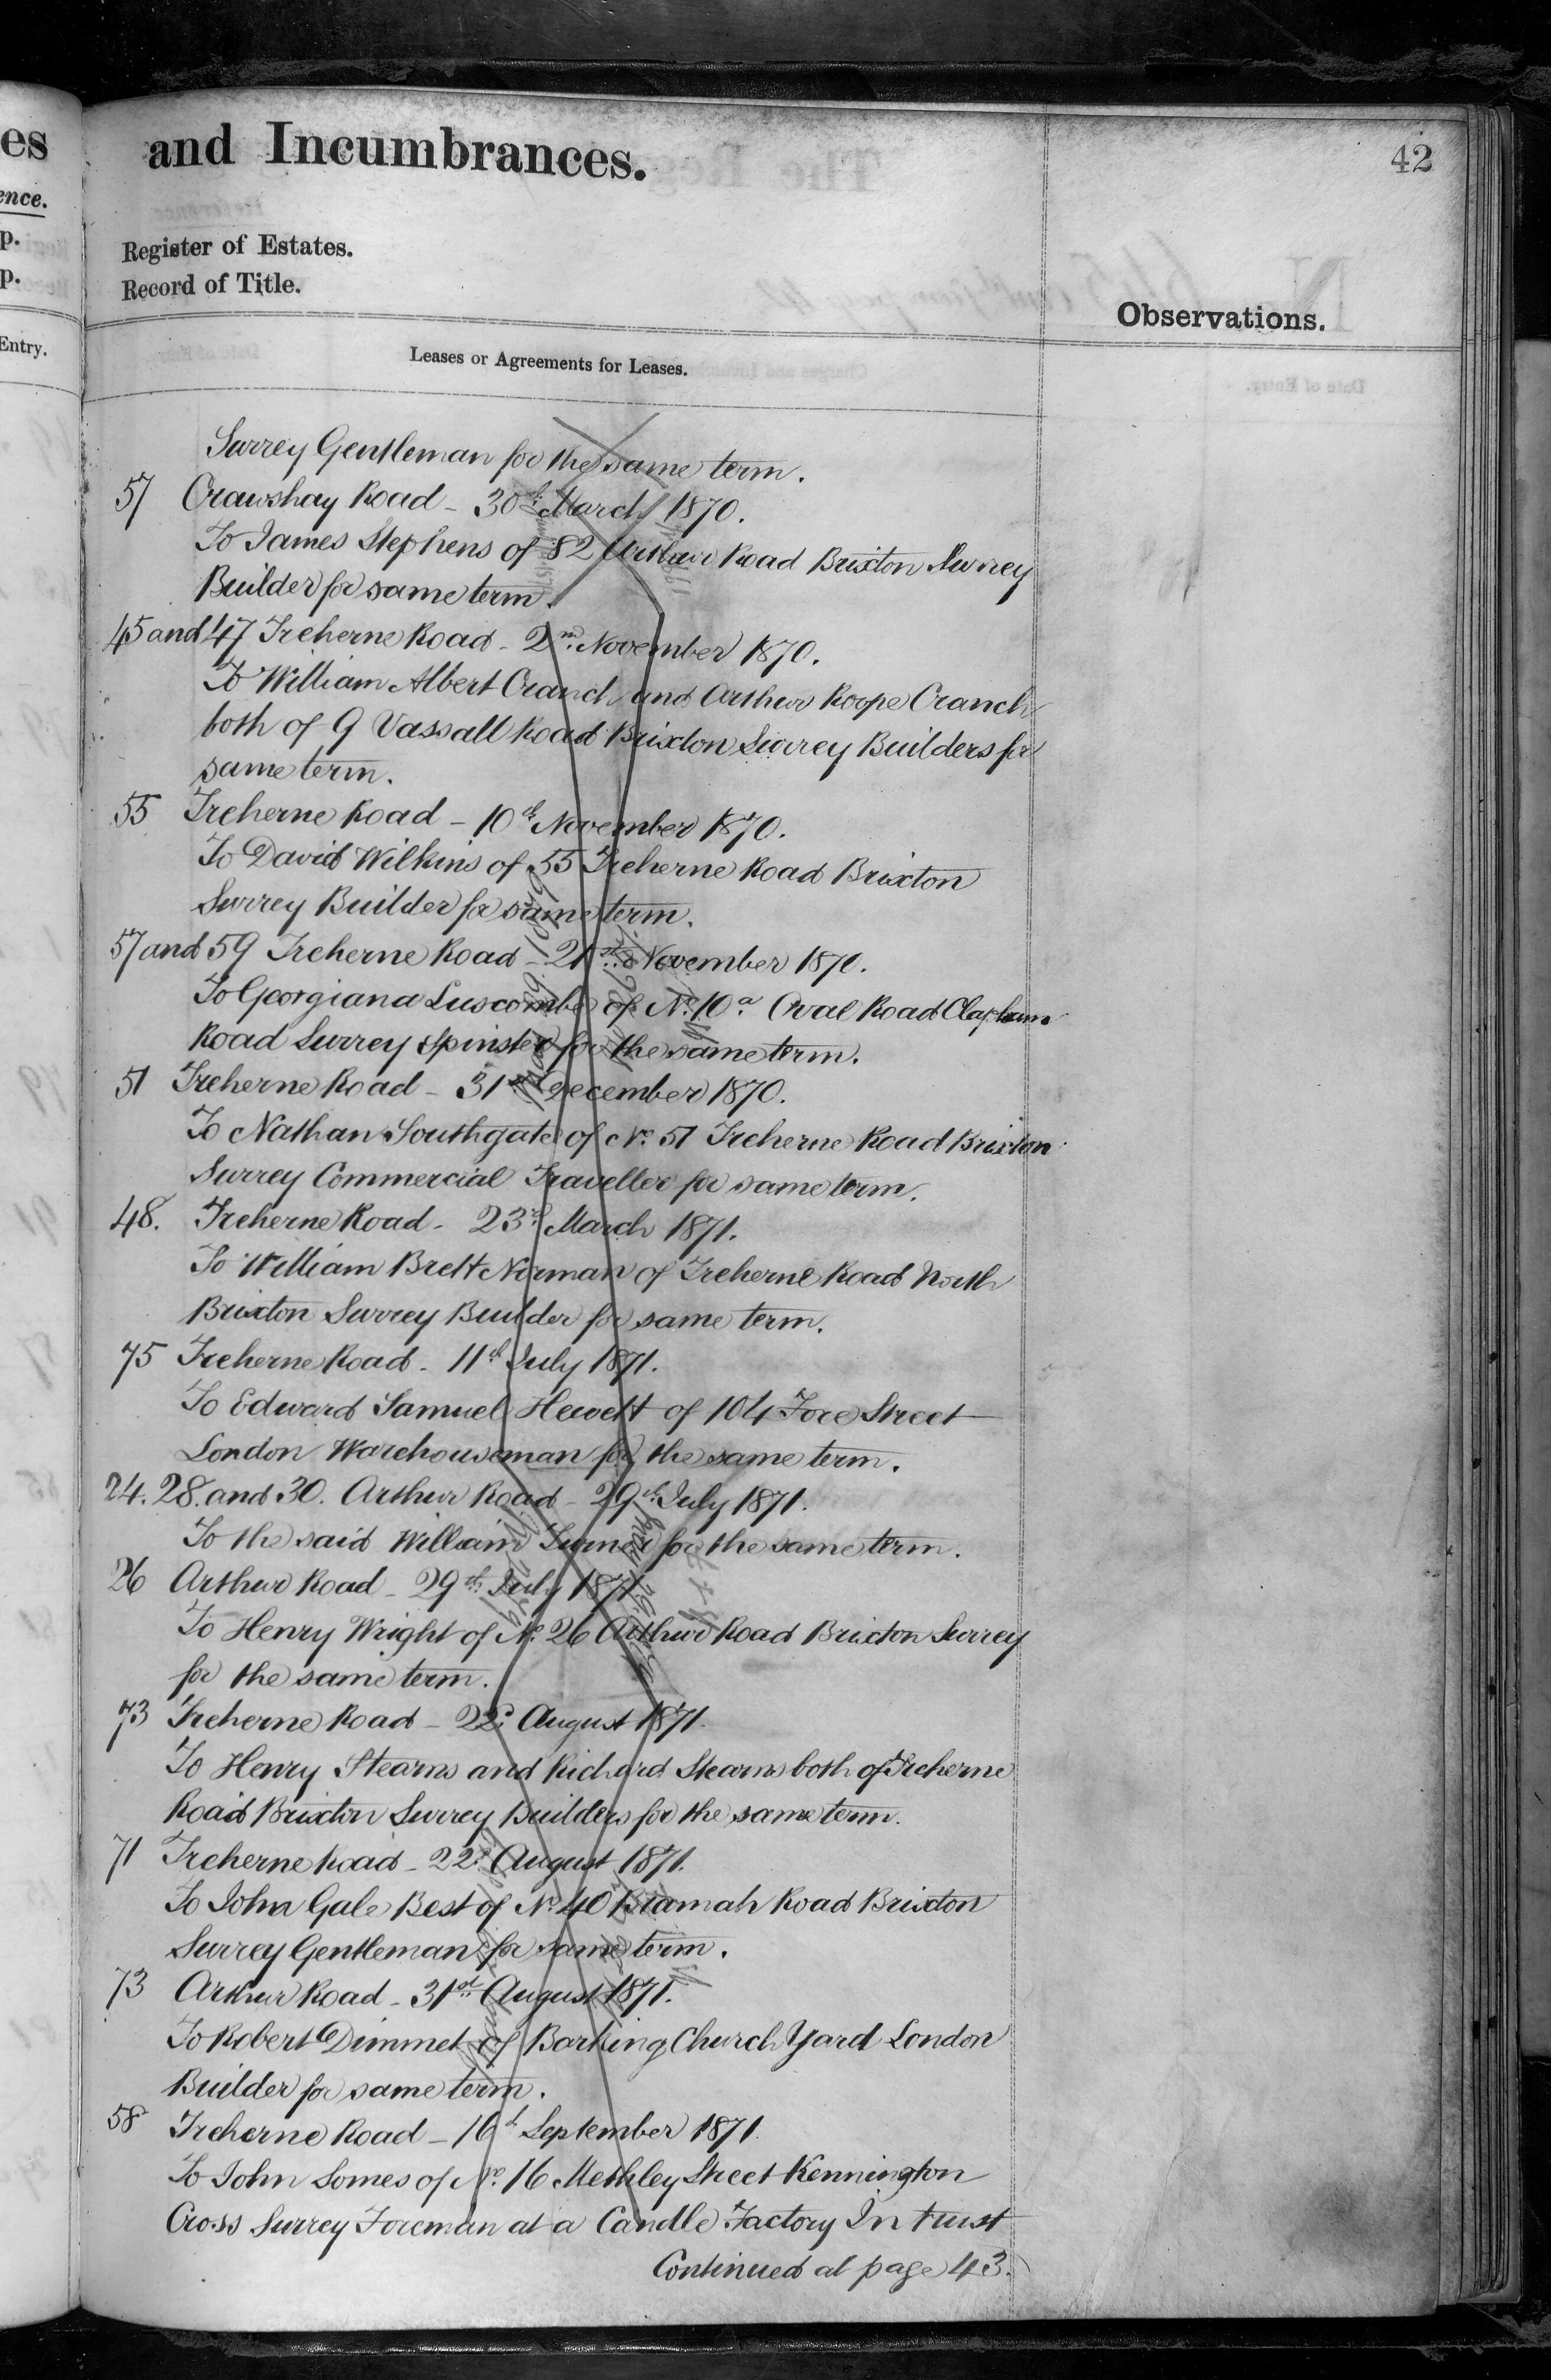 and Incumbrances.
42
Register of Estates.
Record of Title.
Observations.
Leases or Agreements for Leases.
Surrey Gentleman for the same term.
57 Crawshay Road - 30th March 1870.
To James Stephens of 82 Arthur Road Brixton Surrey
Builder for same term.
45 and 47 Treherne Road - 2nd November 1870.
To William Albert Cranch and Arthur Roope Cranch
both of 9 Vassall Road Brixton Surrey Builders for
same term.
55 Treherne Road - 10th November 1870.
To David Wilkins of 55 Treherne Road Brixton
Surrey Builder for same term.
57 and 59 Treherne Road - 21st November 1870.
To Georgiana Luscombe of No. 10a Oval Road Clapham
Road Surrey Spinster for the same term.
51 Treherne Road - 31st December 1870.
To Nathan Southgate of No. 51 Treherne Road Brixton
Surrey Commercial Traveller for same term.
48. Treherne Road - 23rd March 1871.
To William Brett Norman of Treherne Road North
Brixton Surrey Builder for same term.
75 Treherne Road - 11th July 1871.
To Edward Samuel Hewett of 104 Fore Street
London Warehouseman for the same term.
24. 28. and 30. Arthur Road - 29th July 1871.
To the said William Turner for the same term.
26 Arthur Road - 29th July 1871
To Henry Wright of No. 26 Arthur Road Brixton Surrey
for the same term.
73 Treherne Road - 22d August 1871.
To Henry Stearns and Richard Stearns both of Treherne
Road Brixton Surrey Builders for the same term.
71 Treherne Road - 22d August 1871.
To John Gale Best of No. 40 Bramah Road Brixton
Surrey Gentleman for same term.
73 Arthur Road - 31st August 1871.
To Robert Dimmet of Barking Church Yard London
Builder for same term.
58 Treherne Road - 16th September 1871.
To John Somes of No. 16 Methley Street Kennington
Cross Surrey Foreman at a Candle Factory In trust
Continued at page 43.
es
ence.
p.
p.
Entry.